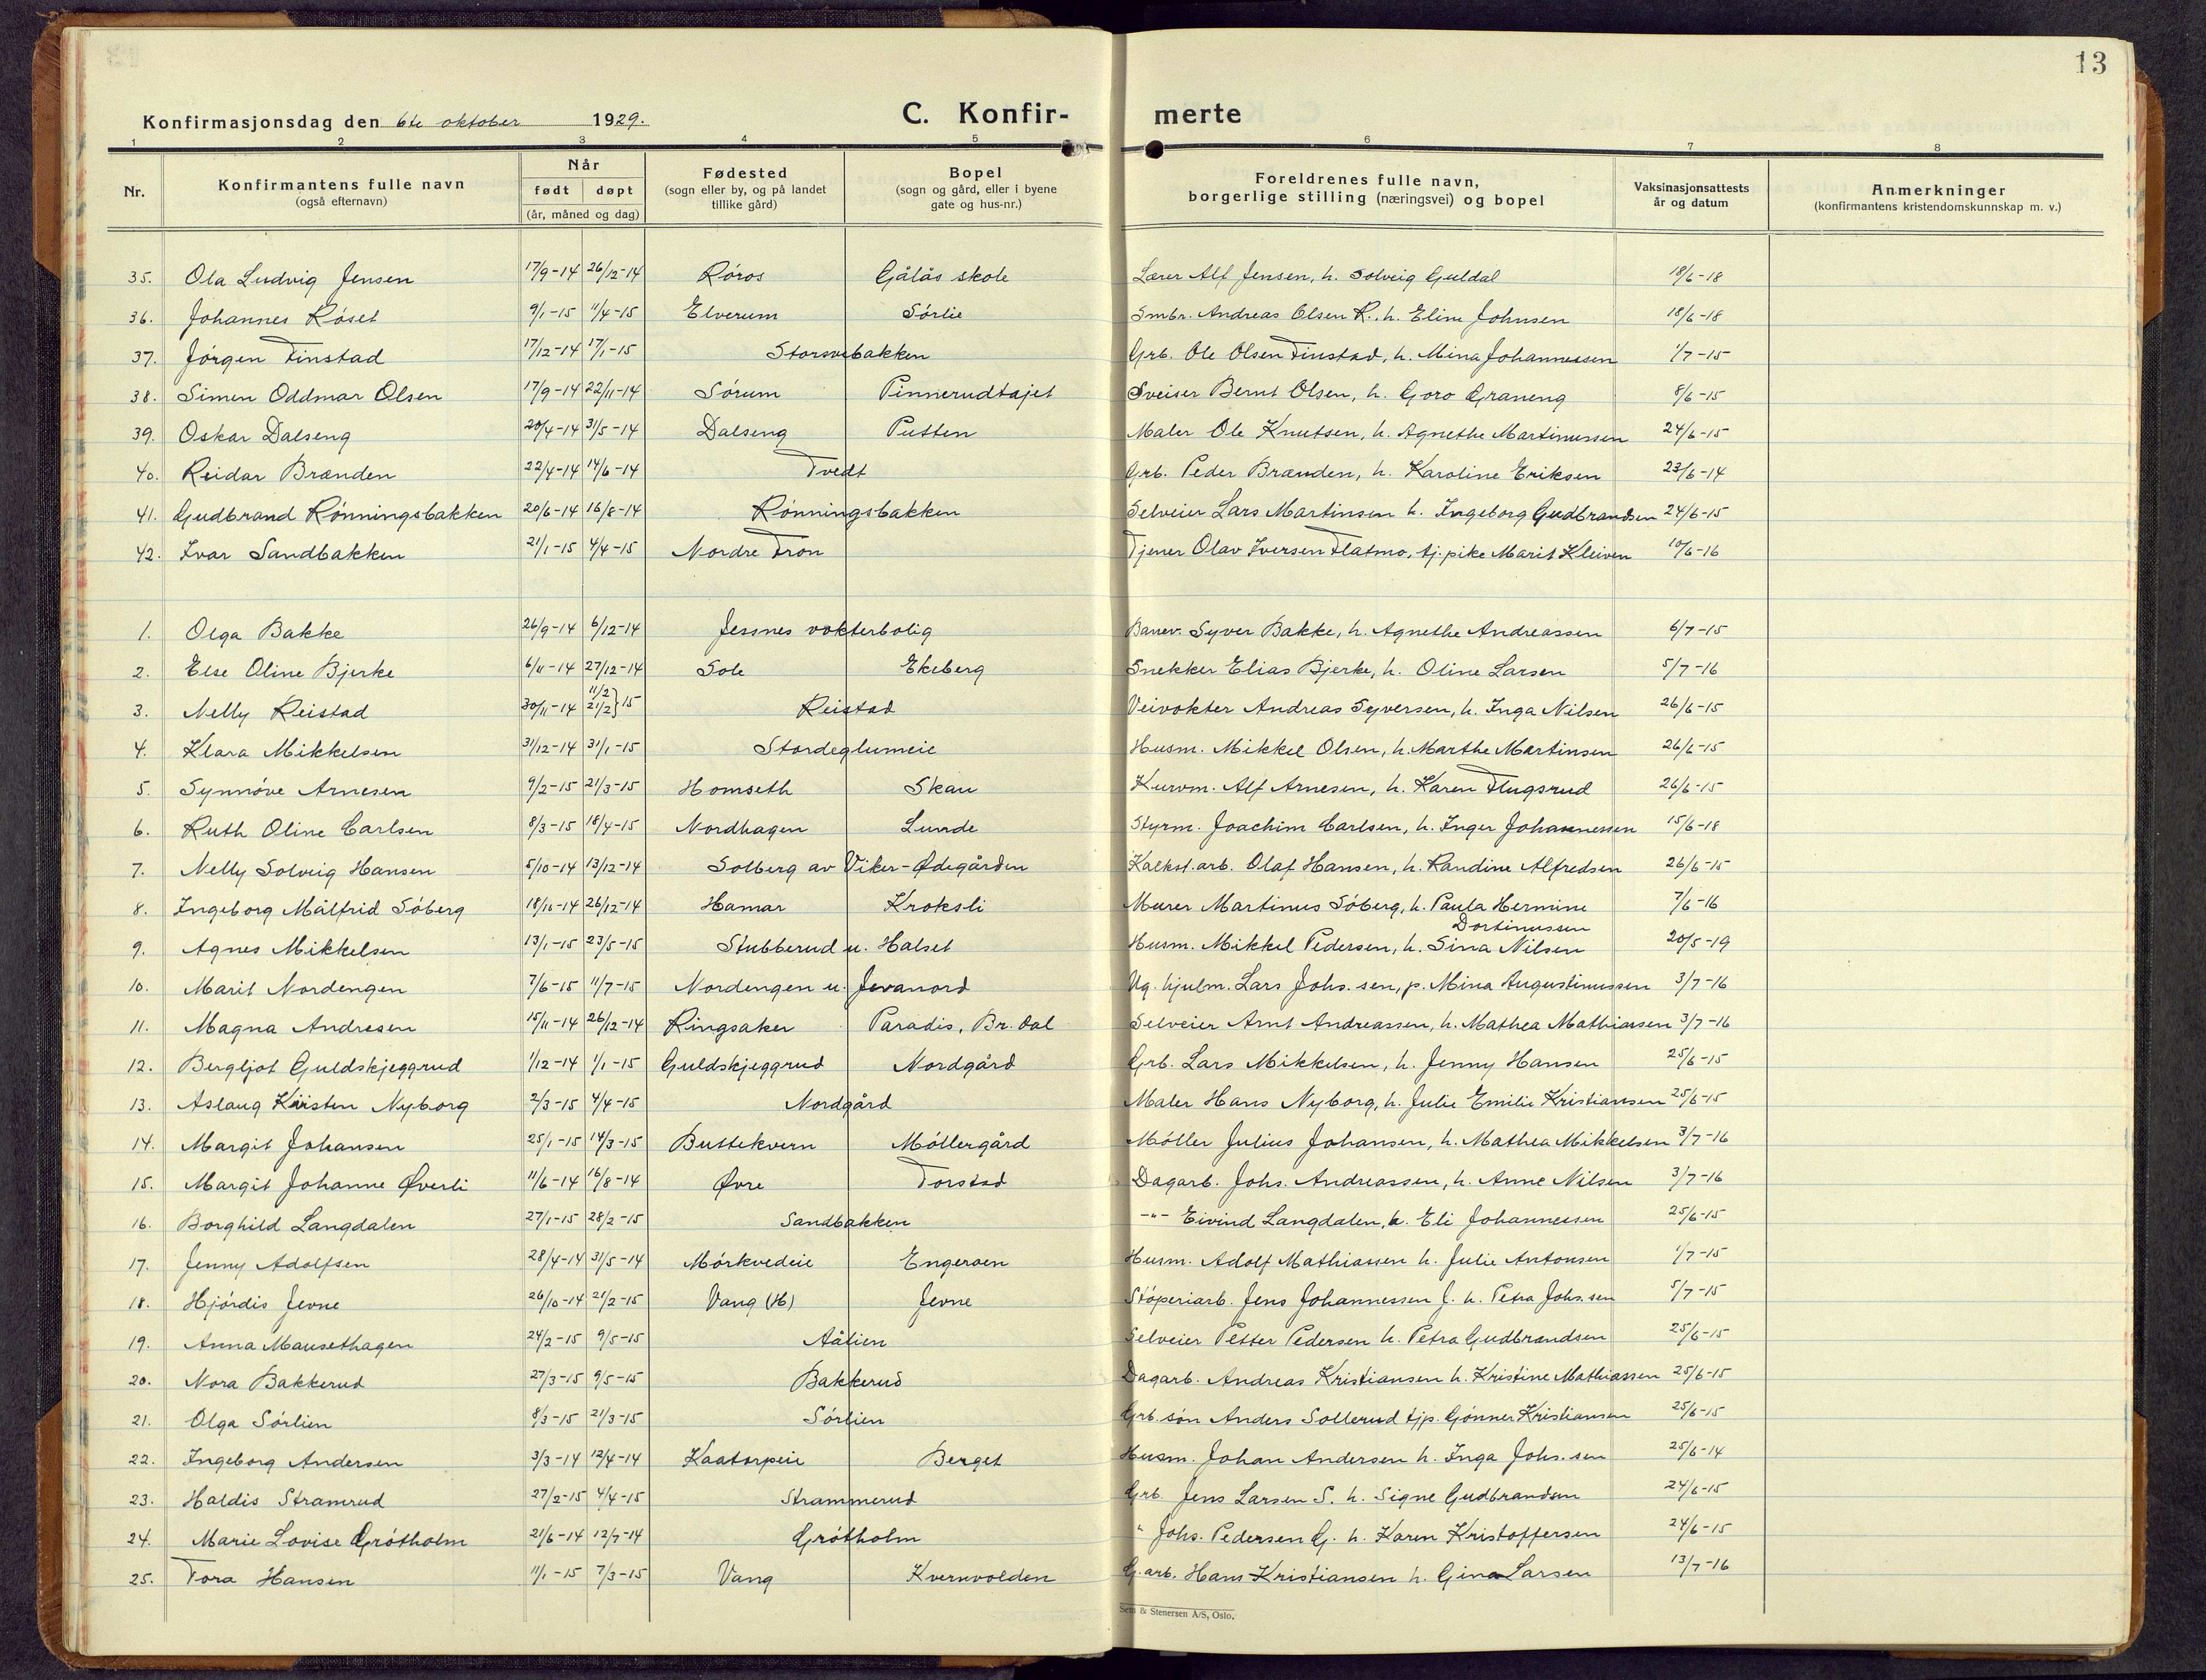 13
Konfirmasjonsdag den 6te oktober 1929. C. Konfir- merte
1 2 3 4 5 6 7 8
Nr. Konfirmantens fulle navn (også efternavn) Når født døpt (år, måned og dag) Fødested (sogn eller by, og på landet tillike gård) Bopel (sogn og gård, eller i byene gate og hus-nr.) Foreldrenes fulle navn, borgerlige stilling (næringsvei) og bopel Vaksinasjonsattests år og datum Anmerkninger (konfirmantens kristendomskunnskap m. v.)
35. Ola Ludvig Jensen 17/9-14 26/12-14 Røros Gålås skole Lærer Alf Jensen, h. Solveig Guldal 18/6-18
36. Johannes Røset 9/1-15 11/4-15 Elverum Sørlie Smbr. Andreas Olsen R., h. Eline Johnsen 18/6-18
37. Jørgen Finstad 17/12-14 17/1-15 Storsvebakken Grb. Ole Olsen Finstad, h. Mina Johannessen 1/7-15
38. Simen Oddmar Olsen 17/9-14 22/11-14 Sørum Pinnerudtajet Sveiser Bernt Olsen, h. Goro Graneng 8/6-15
39. Oskar Dalseng 20/4-14 31/5-14 Dalseng Putten Maler Ole Knutsen, h. Agnethe Martinussen 24/6-15
40. Reidar Brænden 22/4-14 14/6-14 Tvedt Grb. Peder Brænden, h. Karoline Eriksen 23/6-14
41. Gudbrand Rønningsbakken 20/6-14 16/8-14 Rønningsbakken Selveier Lars Martinsen h. Ingeborg Gudbrandsen 24/6-15
42. Ivar Sandbakken 21/1-15 4/4-15 Nordre Fron Tjener Olav Iversen Flatmo, tj.pike Marit Kleiven 10/6-16
1. Olga Bakke 26/9-14 6/12-14 Jessnes vokterbolig Banev. Syver Bakke, h. Agnethe Andreassen 6/7-15
2. Else Oline Bjerke 6/11-14 27/12-14 Sole Ekeberg Snekker Elias Bjerke, h. Oline Larsen 5/7-16
3. Nelly Reistad 30/11-14 11/2 21/2}15 Reistad Veivokter Andreas Syversen, h. Inga Nilsen 26/6-15
4. Klara Mikkelsen 31/12-14 31/1-15 Stordeglumeie Husm. Mikkel Olsen, h. Marthe Martinsen 26/6-15
5. Synnøve Arnesen 9/2-15 21/3-15 Homseth Skau Kurvm. Alf Arnesen, h. Karen Flugsrud 26/6-15
6. Ruth Oline Carlsen 8/3-15 18/4-15 Nordhagen Lunde Styrm. Joachim Carlsen, h. Inger Johannessen 15/6-18
7. Nelly Solveig Hansen 5/10-14 13/12-14 Solberg av Viker-Ødegården Kalkst.arb. Olaf Hansen, h. Randine Alfredsen 26/6-15
8. Ingeborg Målfrid Søberg 18/10-14 26/12-14 Hamar Kroksli Murer Martinus Søberg, h. Paula Hermine 7/6-16
Dortinussen
9. Agnes Mikkelsen 13/1-15 23/5-15 Stubberud u. Halset Husm. Mikkel Pedersen, h. Sina Nilsen 20/5-19
10. Marit Nordengen 7/6-15 11/7-15 Nordengen u. Jevanord Ug. hjulm. Lars Johs.sen, p. Mina Augustinussen 3/7-16
11. Magna Andresen 15/11-14 26/12-14 Ringsaker Paradis, Br. dal Selveier Arnt Andreassen, h. Mathea Mathiassen 3/7-16
12. Bergljot Guldskjeggrud 1/12-14 1/1-15 Guldskjeggrud Nordgård Grb. Lars Mikkelsen, h. Jenny Hansen 25/6-15
13. Aslaug Kirsten Nyborg 2/3-15 4/4-15 Nordgård Maler Hans Nyborg, h. Julie Emilie Kristiansen 25/6-15
14. Margit Johansen 25/1-15 14/3-15 Buttekvern Møllergård Møller Julius Johansen, h. Mathea Mikkelsen 3/7-16
15. Margit Johanne Øverli 11/6-14 16/8-14 Øvre Torstad Dagarb. Johs. Andreassen, h. Anne Nilsen 3/7-16
16. Borghild Langdalen 27/1-15 28/2-15 Sandbakken -"- Eivind Langdalen, h. Eli Johannessen 25/6-15
17. Jenny Adolfsen 28/4-14 31/5-14 Mørkvedeie Engeroen Husm. Adolf Mathiassen h. Julie Antonsen 1/7-15
18. Hjørdis Jevne 26/10-14 21/2-15 Vang (H) Jevne Støperiarb. Jens Johannessen J. h. Petra Johs.sen 5/7-15
19. Anna Mausethagen 24/2-15 9/5-15 Aålien Selveier Petter Pedersen h. Petra Gudbrandsen 25/6-15
20. Nora Bakkerud 27/3-15 9/5-15 Bakkerud Dagarb. Andreas Kristiansen h. Kristine Mathiassen 25/6-15
21. Olga Sørlien 8/3-15 21/3-15 Sørlien Grb. søn Anders Sollerud tjp. Gønner Kristiansen 25/6-15
22. Ingeborg Andersen 3/3-14 12/4-14 Kaatorpeie Berget Husm. Johan Andersen h. Inga Johs.sen 25/6-14
23. Haldis Stramrud 27/2-15 4/4-15 Strammerud Grb. Jens Larsen S. h. Signe Gudbrandsen 24/6-15
24. Marie Lovise Grøtholm 21/6-14 12/7-14 Grøtholm " Johs. Pedersen G. h. Karen Kristoffersen 24/6-15
25. Tora Hansen 11/1-15 7/3-15 Vang Kvernvolden G.arb. Hans Kristiansen h. Gina Larsen 13/7-16
Sem & Stenersen A/S, Oslo.